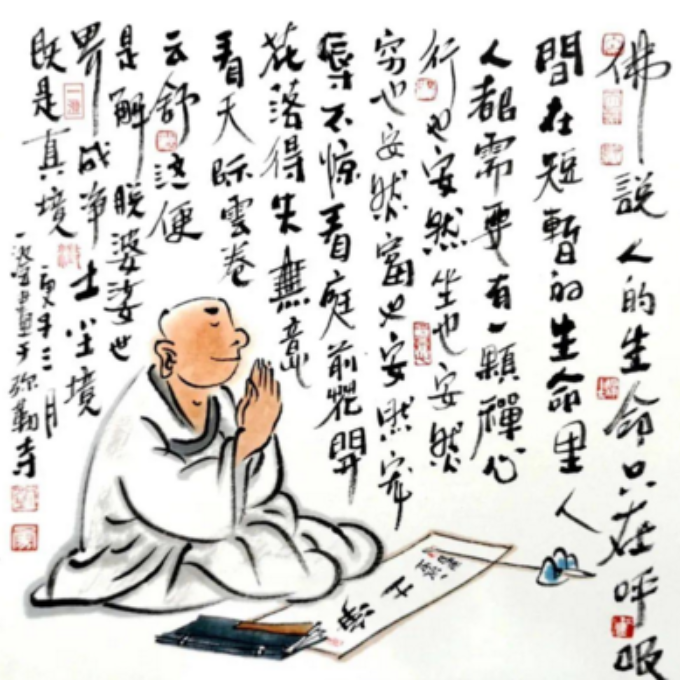 佛說人的生命只在呼吸
間在短暫的生命里人
人都需要有一顆禪心
行也安然坐也安然
穷也安然富也安然宠
辱不惊看庭前花開
花落得失無意
看天际雲卷
云舒這便
是解脱婆娑世
界成净土尘境
既是真境
年三月
于弥勒寺